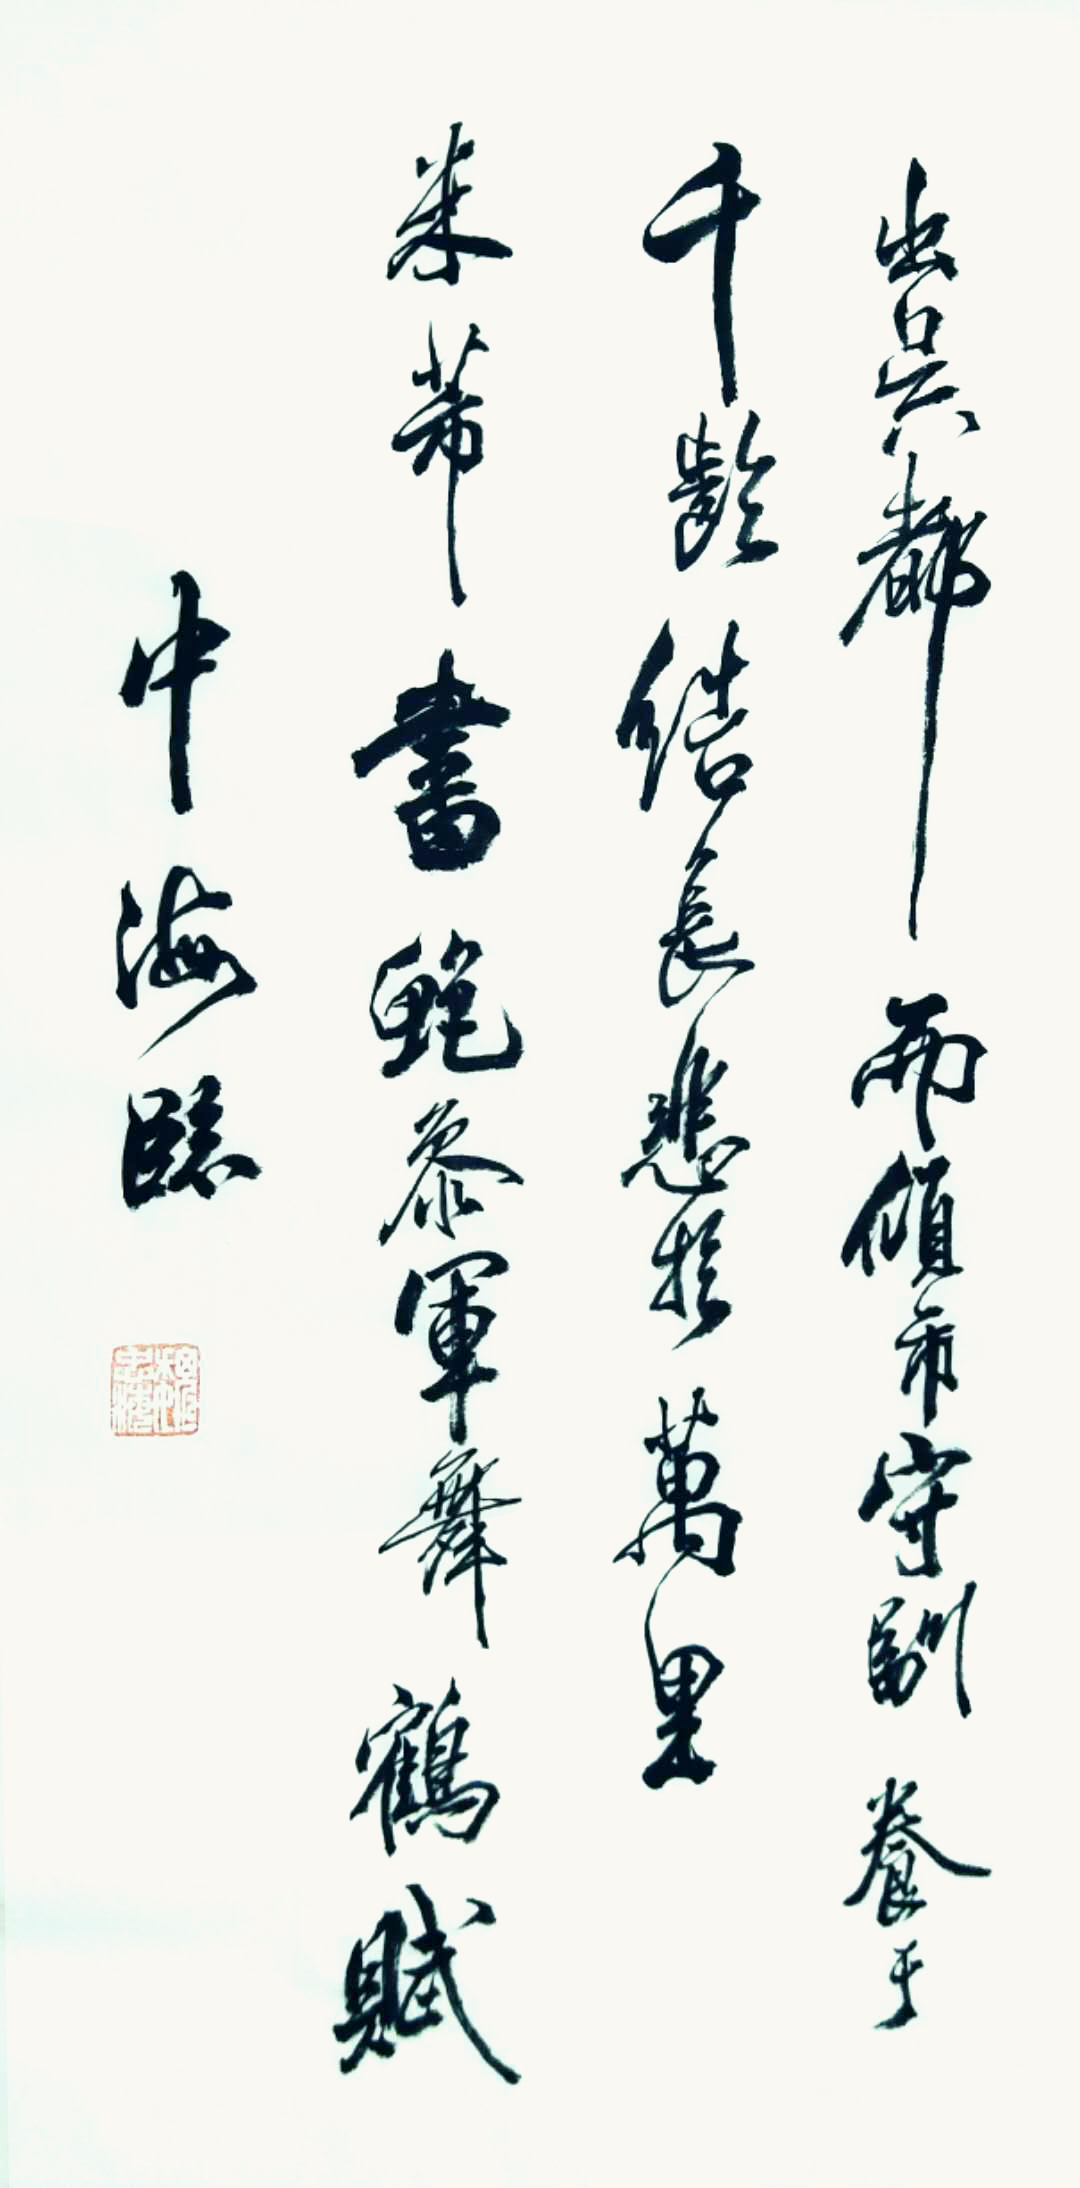 出吳都而傾市守馴養于
千齡結長悲於萬里
米芾書鮑參軍舞鶴賦
中海臨